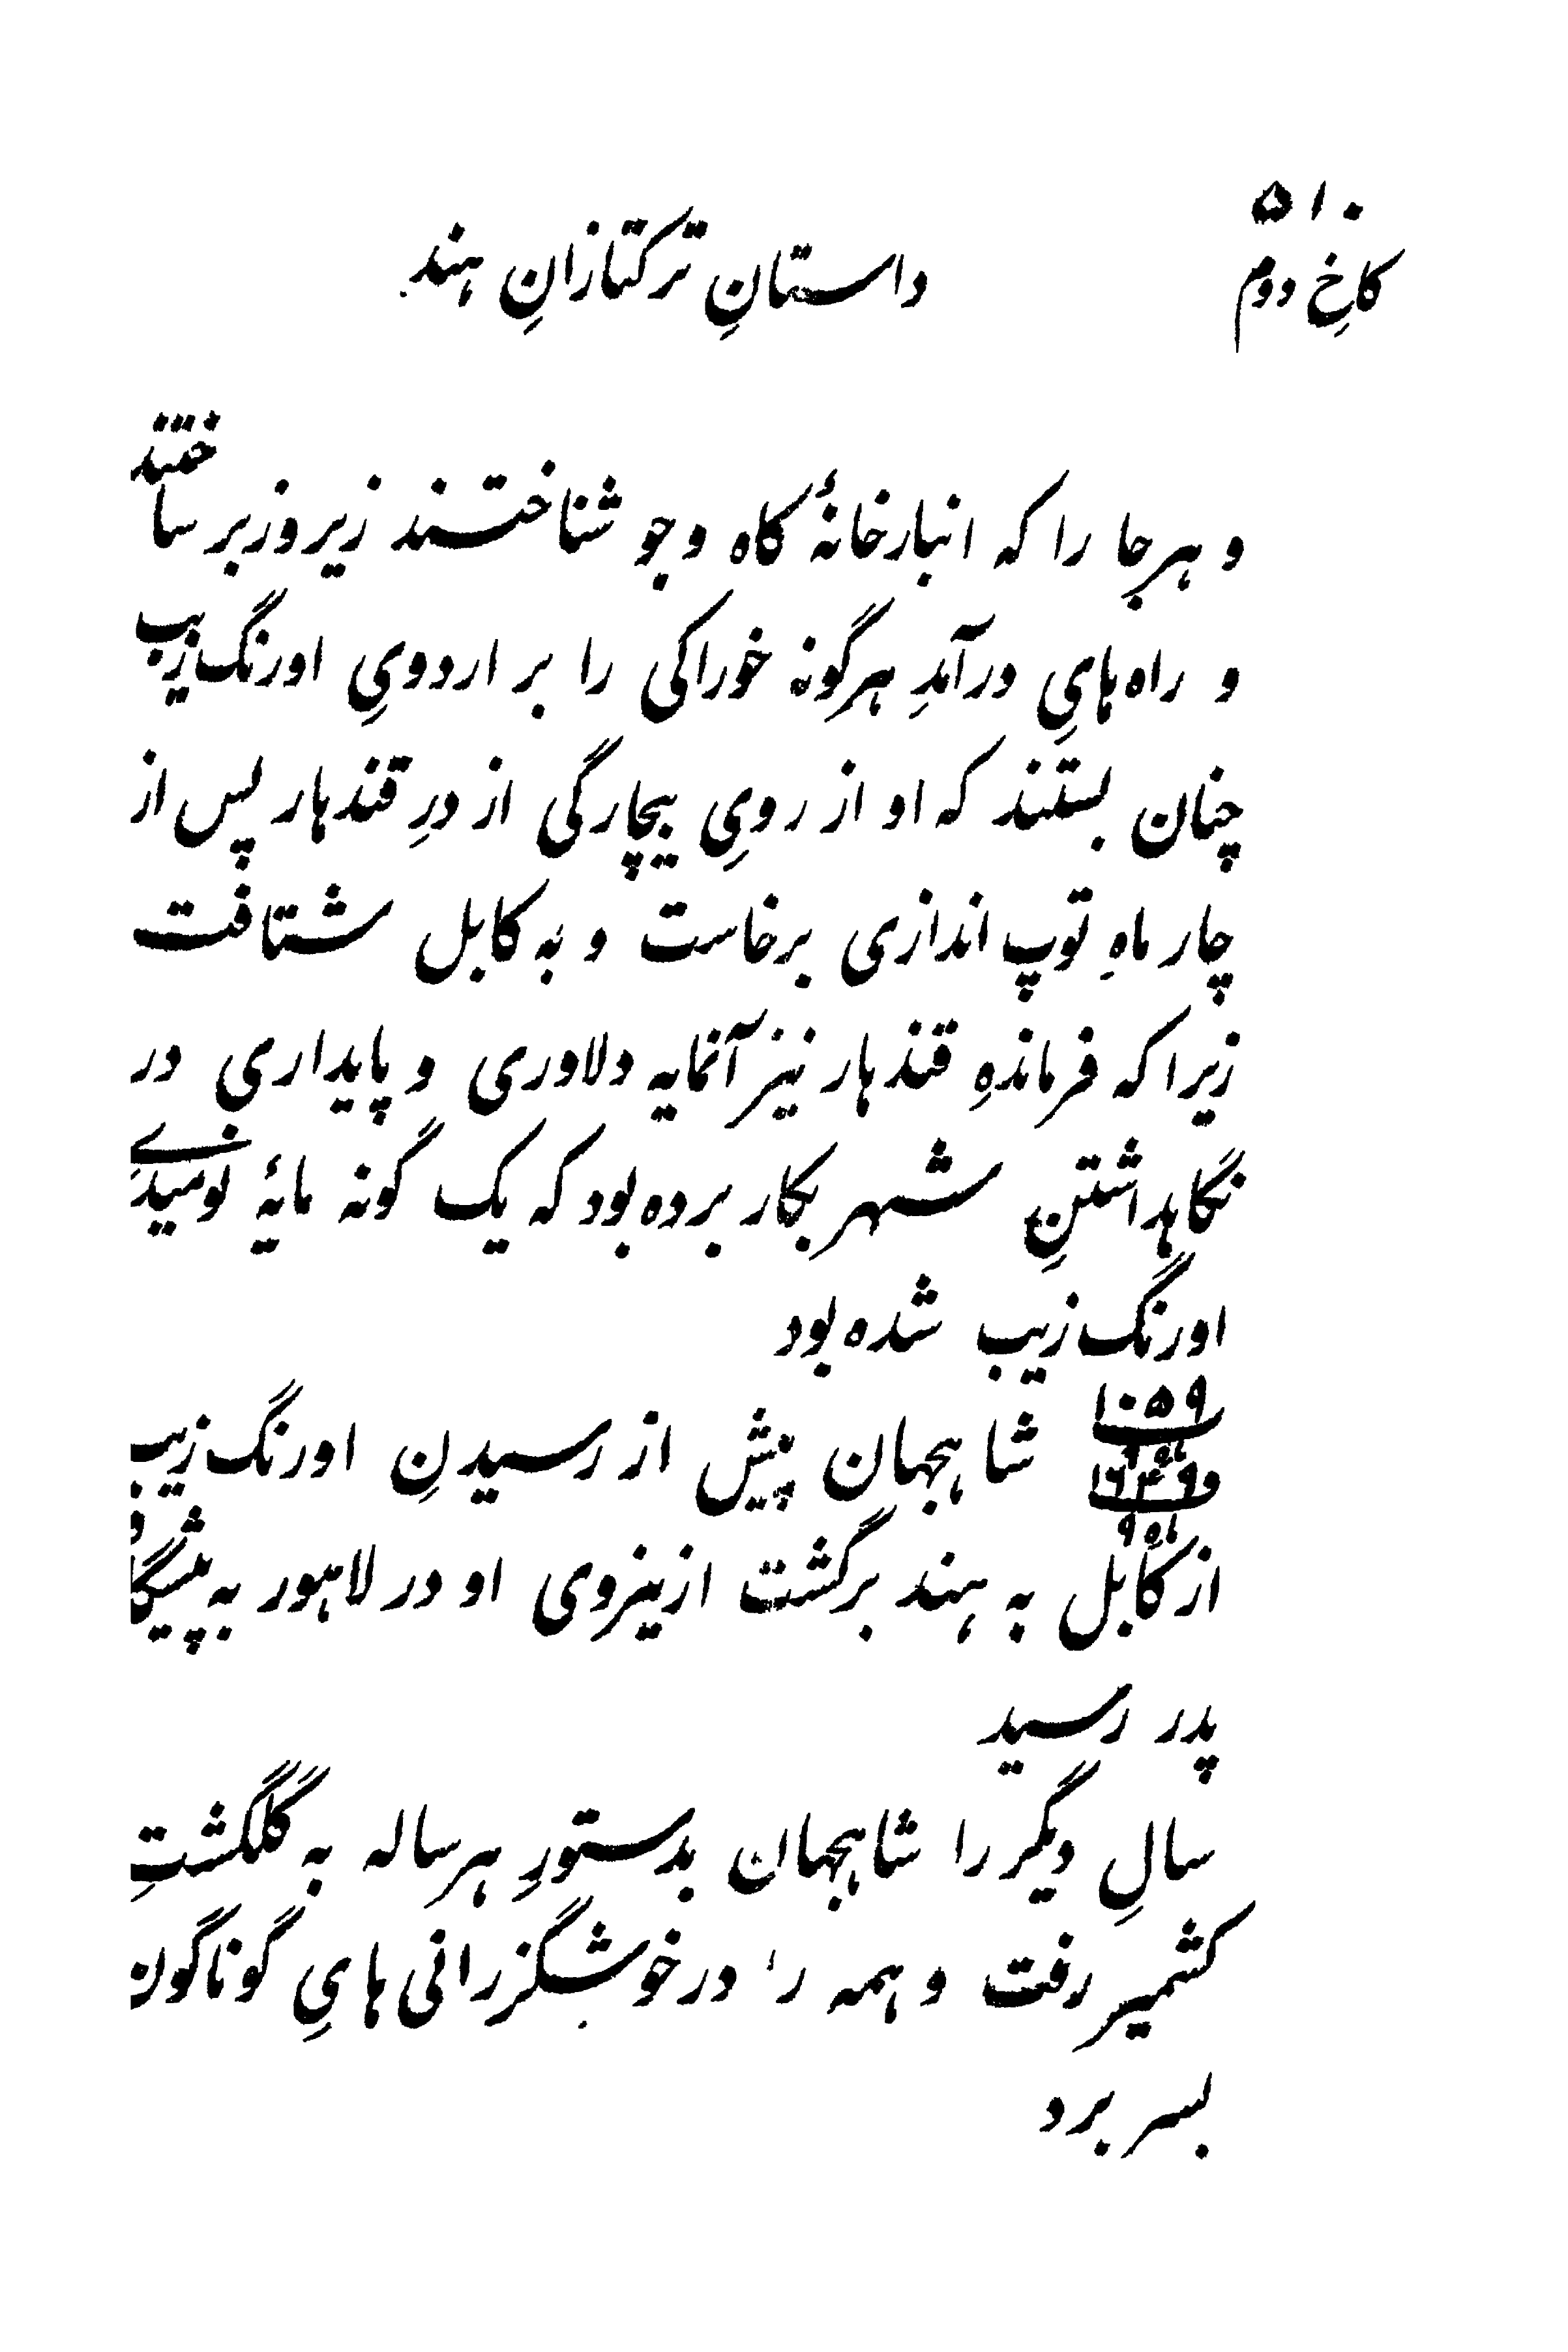 ۵۱۰
کاخِ دوم
داستانِ ترکتازانِ هند
و هرجا را که انبارخانهٔ کاه و جو شناختند زیروزبر ساختند
و راه‌هایِ درآمدِ هرگونه خوراکی را بر اردویِ اورنگ‌زیب
چنان بستند که او از رویِ بیچارگی از درِ قندهار پس از
چار ماهِ توپ اندازی برخاست و به کابل شتافت
زیرا که فرماندهِ قندهار نیز آنمایه دلاوری و پایداری در
نگاهداشتنِ شهر بکار برده بود که یک گونه مایهٔ نومیدیِ
اورنگ‌زیب شده بود
۱۰۵۹
شاهجهان پیش از رسیدنِ اورنگ‌زیب
و ۱۶۴۹
ماه ۹
از کابل به هند برگشت ازینروی او در لاهور به پیشگاهِ
پدر رسید
سالِ دیگر را شاهجهان بدستورِ هرساله به گلگشتِ
کشمیر رفت و همه را در خوشگزرانی هایِ گوناگون
بسر برد